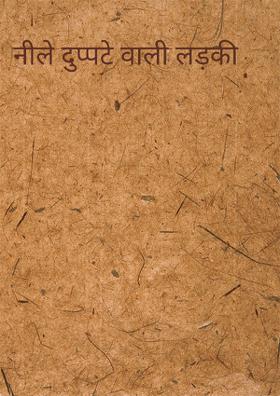 नीले दुप्पटे वाली लड़की